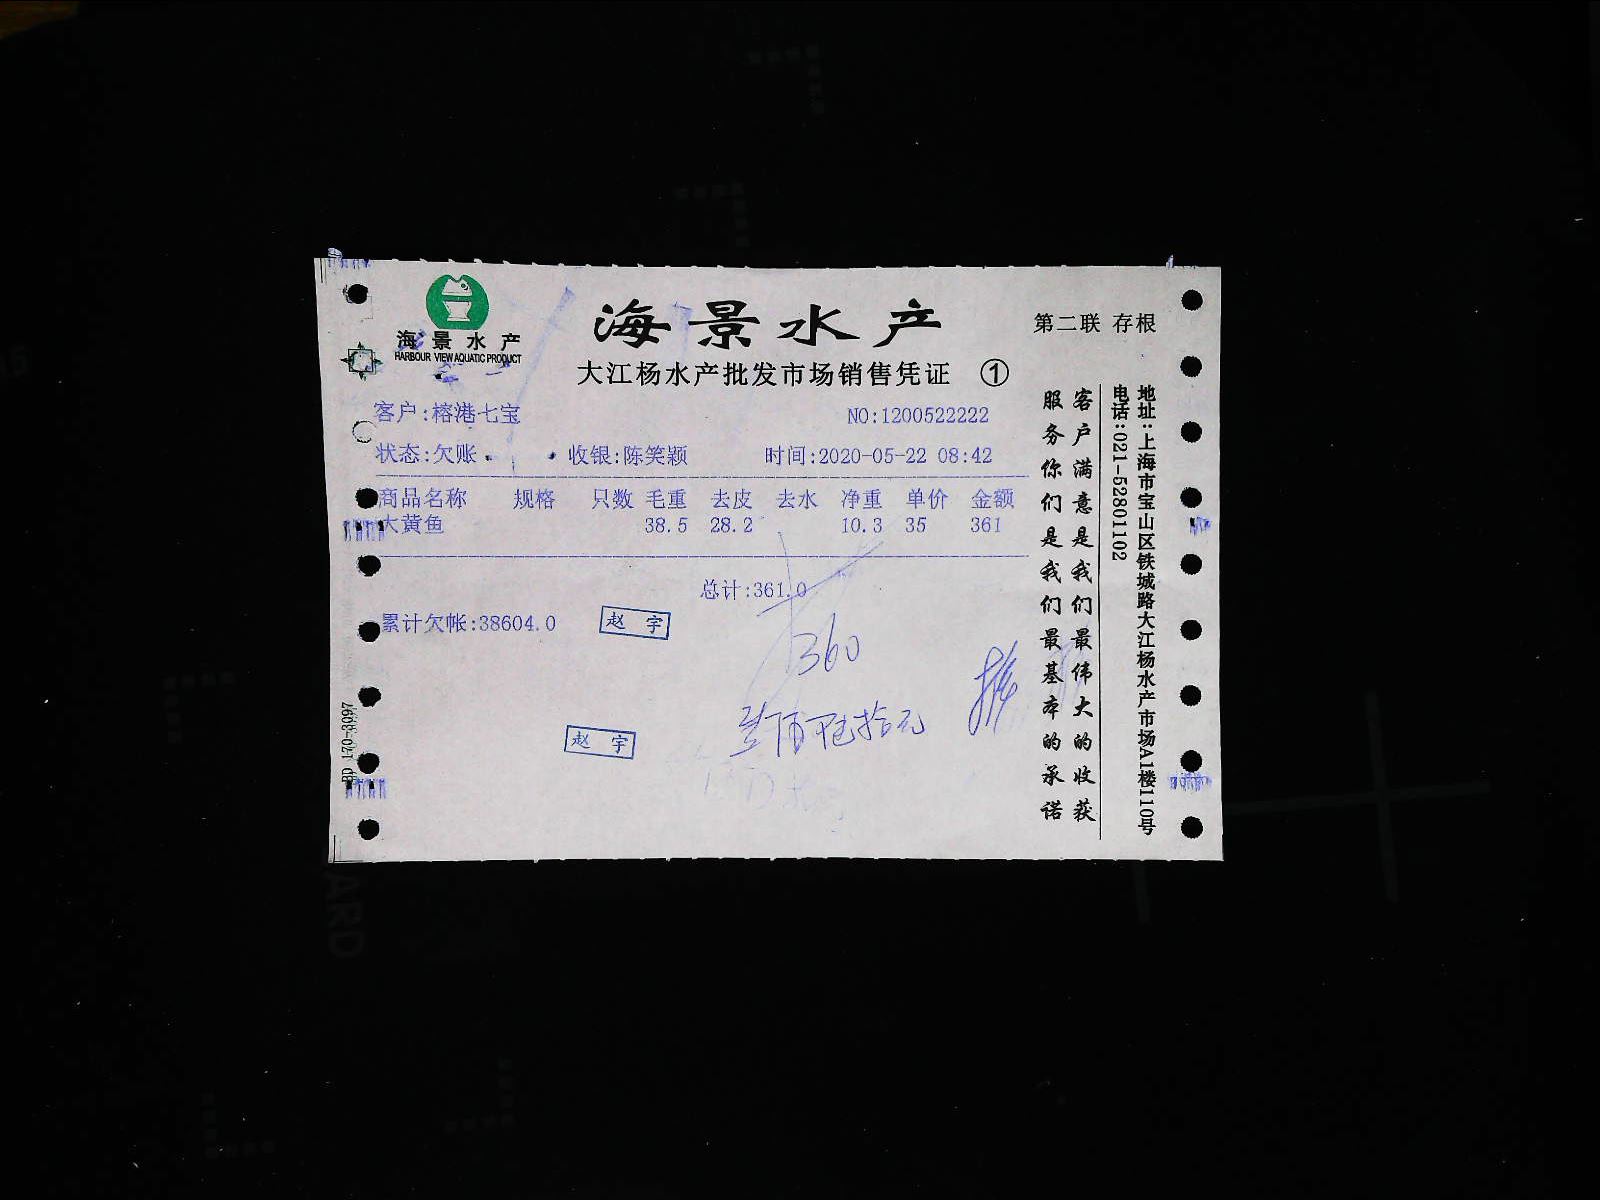 海景水产
HARBOUR VIEW AQUATIC PRODUCT
海景水产
第二联 存根
大江杨水产批发市场销售凭证 ①
客户:榕港七宝 NO:1200522222
状态:欠账 收银:陈笑颖 时间:2020-05-22 08:42
商品名称 规格 只数 毛重 去皮 去水 净重 单价 金额
大黄鱼 38.5 28.2 10.3 35 361
总计:361.0
累计欠帐:38604.0
赵宇
360
叁佰陆拾元
赵宇
客户满意是我们最伟大的收获
服务你们是我们最基本的承诺
地址:上海市宝山区铁城路大江杨水产市场A1楼110号
电话:021-52801102
ARD